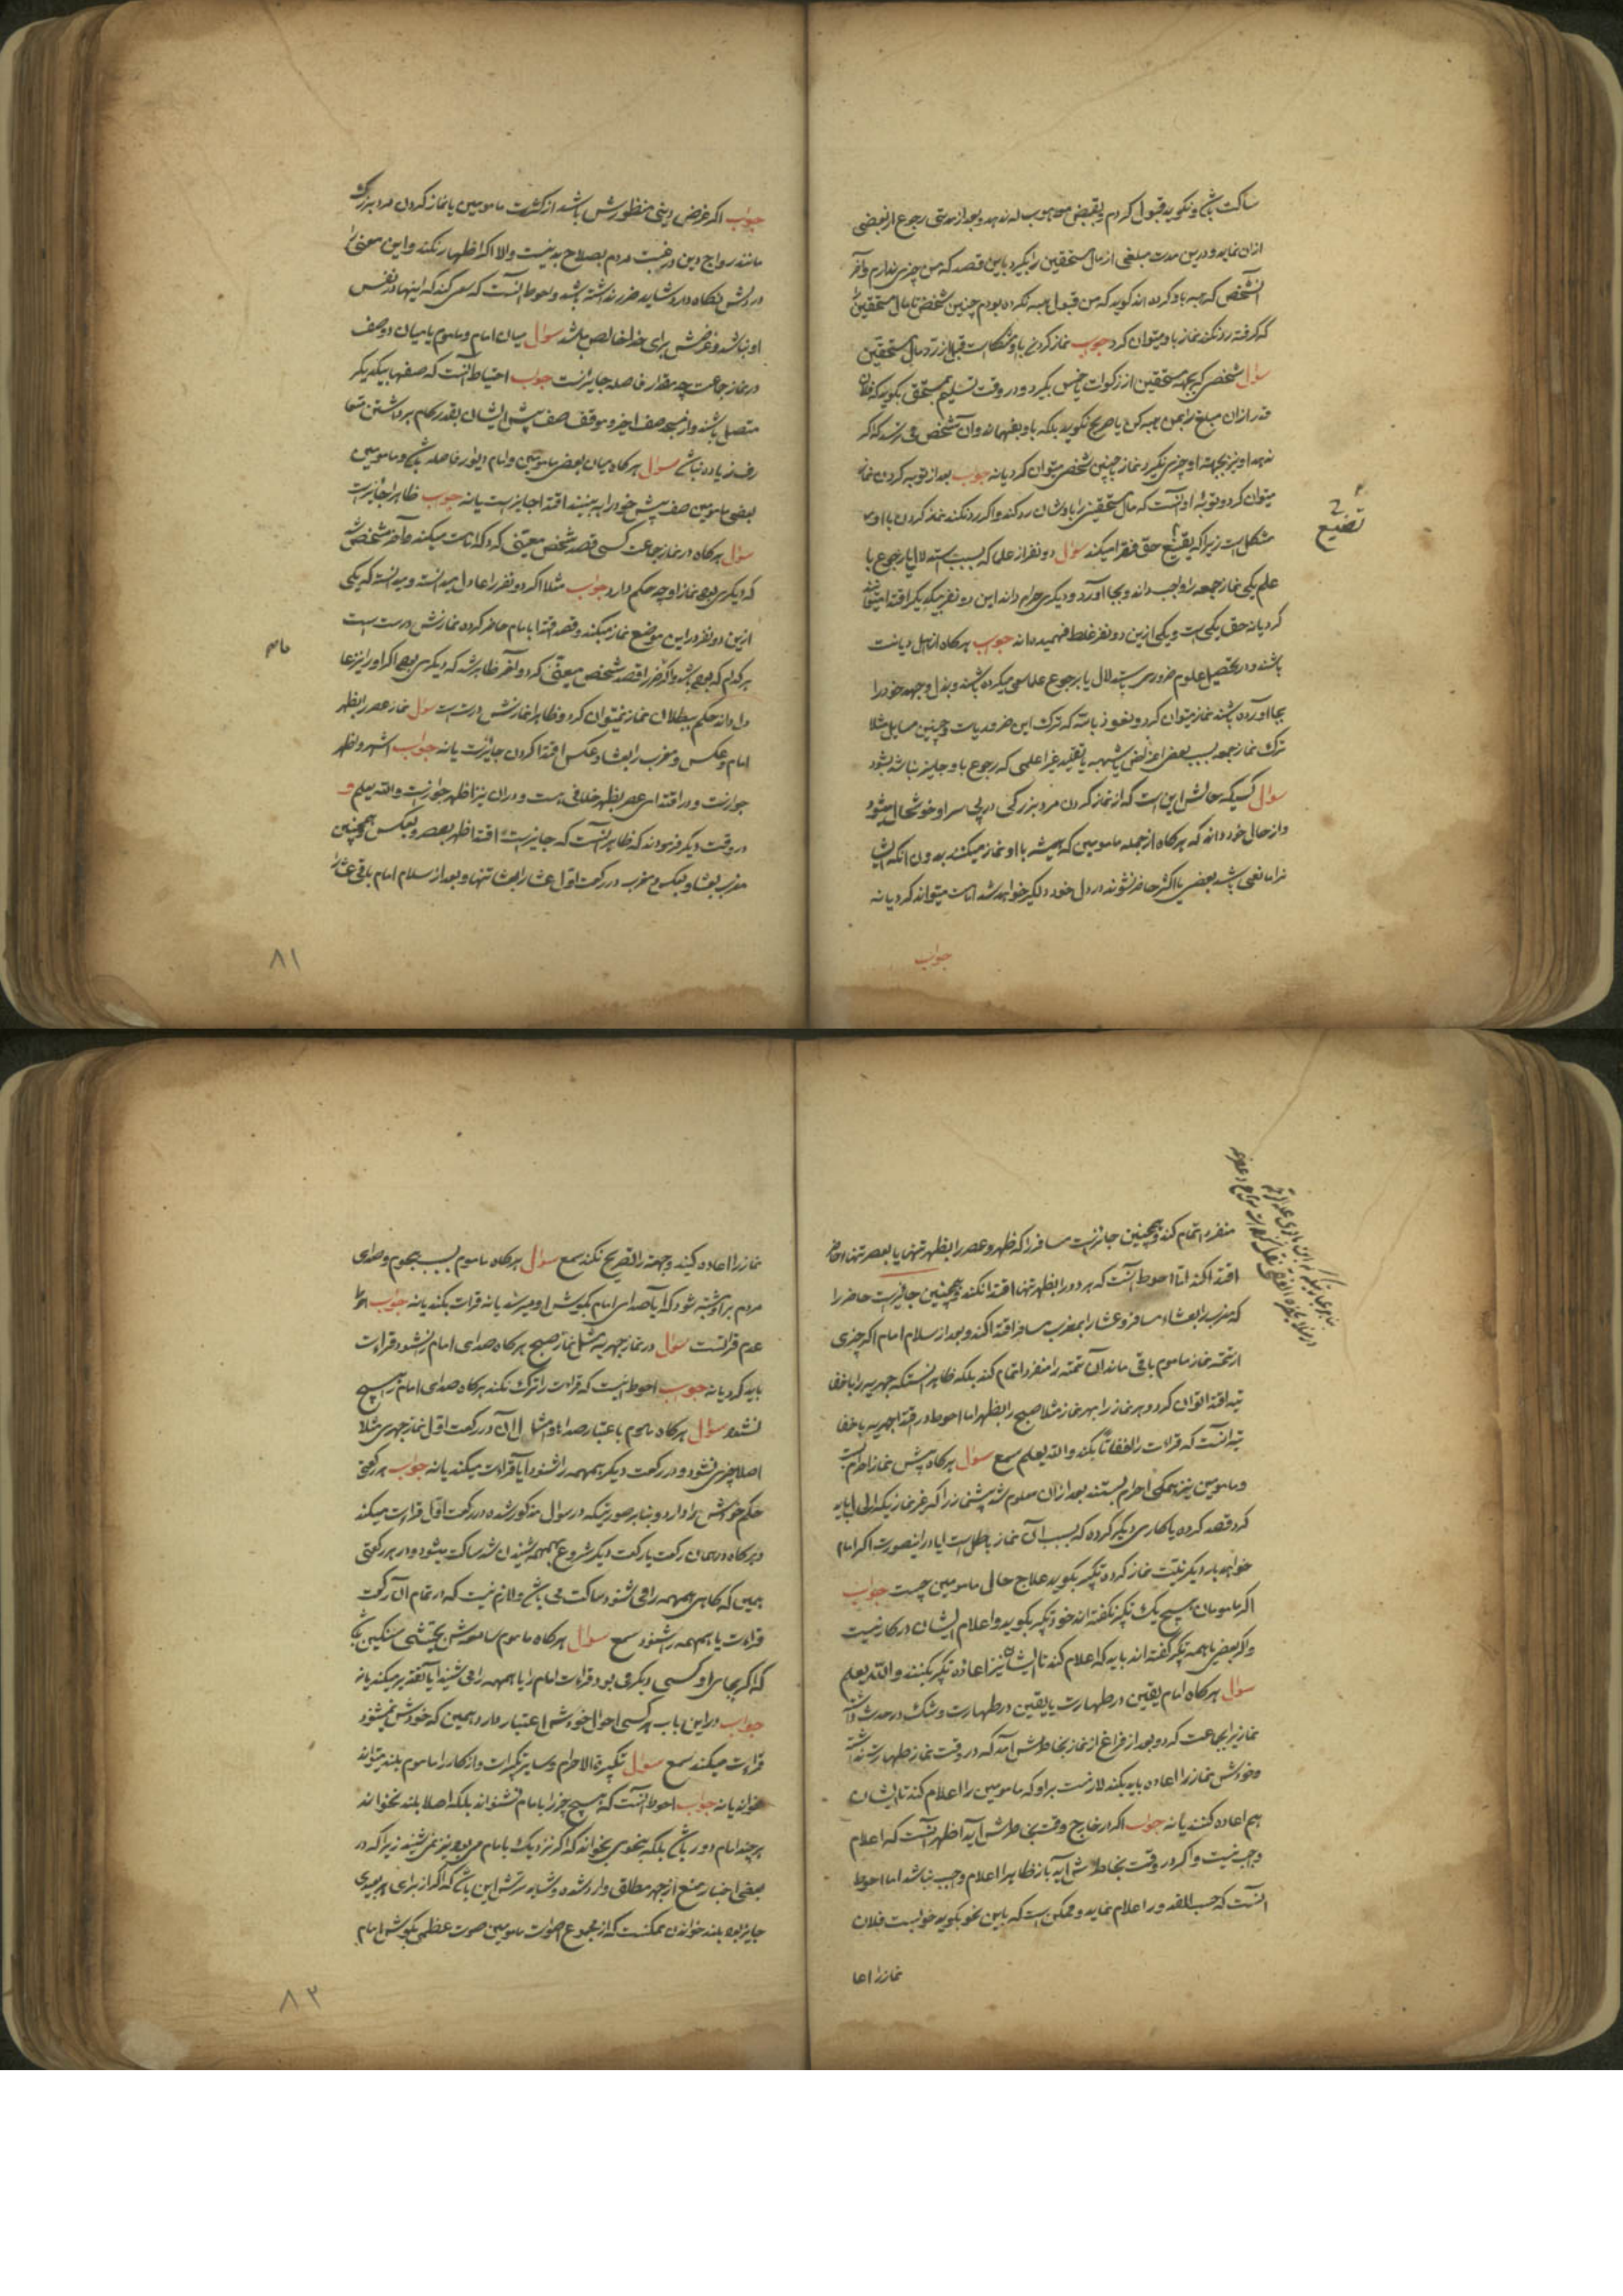 ساکت باشد و نکوید قبول کردم و بقبض موهوب له ندهد و بعد از مدتی رجوع از بعضی
ازان نماید و درین مدت مبلغی از مال مستحقین را بکیرد باین قصد که من چیزی ندارم و آخر
آنشخص که هبه باو کرده اند کوید که من قبول هبه نکرده بودم چنین شخص تا مال مستحقین را
که کرفته رد نکند نماز باو میتوان کرد جواب نماز کردن باو مشکلست قبل از رد مال مستحقین
سؤال شخصی که بجهة مستحقین از زکوات یا خمس بکیرد و در وقت تسلیم بمستحق بکوید که فلان
قدر ازان مبلغ را بمن هبه کن یا صریح نکوید بلکه باو بفهماند و آن شخص می ترسد که اکر
ندهد او نیز بجهة او چیزی نکیرد نماز بچنین شخص میتوان کرد یا نه جواب بعد از توبه کردن نماز
میتوان کرد و توبهٔ او آنست که مال مستحقین را باوشان رد کند و اکر رد نکند نماز کردن با او
مشکل است زیرا که تضییع حق فقرا میکند سؤال دو نفر از علما که بسبب استدلال یا رجوع با
علم یکی نماز جمعه را واجب داند و بجا آورد و دیکری حرام داند این دو نفر بیکدیکر اقتدا میتوانند
کرد یا نه حق یکی است و یکی ازین دو نفر غلط فهمیده یا نه جواب هرکاه از اهل دیانت
باشند و در تحصیل علوم ضروری استدلال یا برجوع علما سعی میکرده باشند و بذل وجهد خود را
بجا آورده باشند نماز میتوان کرد و نعوذ بالله که ترک این ضروریات و چنین مسایل مثلا
ترک نماز جمعه بسبب بعضی اغراض یا شبهه یا تقلید غیر اعلمی که رجوع باو جایز نباشد بشود
سؤال کسیکه حالش این است که از نماز کردن مرد بزرکی در پی سر او خوشحال میشود
و از حال خود داند که هرکاه از جمله مامومین که همیشه با او نماز میکنند بدون آنکه ایشان
را مانعی باشد بعضی یا اکثر حاضر نشوند در دل خود دلکیر خواهد شد امامت میتواند کرد یا نه
جواب
تضییع
جواب اکر غرض دینی منظورش باشد از کثرت مامومین یا نماز کردن مرد بزرک
مانند رواج دین و رغبت مردم بصلاح بد نیست والا اکر اظهار نکند و این معنی را
در دلش نکاه دارد شاید ضرر نداشته باشد و احوط آنست که سعی کند که اینها در نفس
او نباشد و غرضش برای خدا خالص باشد سؤال میان امام و ماموم یا میان دو صف
در نماز جماعت چه مقدار فاصله جایز است جواب احتیاط آنست که صفها بیکدیکر
متصل باشند و از مسجد صف اخیر و موقف صف پیش ایشان بقدر کام برداشتن متعا
رف زیاده نباشد سؤال هرکاه میان بعضی مامومین و امام دیوار فاصله باشد و مامومین
بعضی مامومین صف پیش خود را به بینند اقتدا جایز هست یا نه جواب ظاهرا جایز است
سؤال هرکاه در نماز جماعت کسی قصد شخص معینی کرد که امامت میکند و آخر مشخص شد
که دیکری بود نماز او چه حکم دارد جواب مثلا اکر دو نفر را عادل میدانست و میدانسته که یکی
ازین دو نفر در این موضع نماز میکند و قصد اقتدا بامام حاضر کرده نمازش درست است
هرکدام که بوده باشد و اکر قصد شخص معینی کرد و آخر ظاهر شد که دیکری بود اکر او را نیز عا
دل داند حکم ببطلان نماز نمیتوان کرد و ظاهرا نمازش درست است سؤال نماز عصر را بظهر
امام و عکس و مغرب را بعشا و عکس اقتدا کردن جایز است یا نه جواب اشهر و اظهر
جواز است و در اقتدای عصر بظهر خلافی هست و دران نیز اظهر جواز است والله یعلم و
در وقت دیکر فرمودند که ظاهر آنست که جایز است اقتدا ظهر بعصر و بعکس و همچنین
مغرب بعشا و بعکس و مغرب در رکعت اول عشا را بعشا تنها و بعد از سلام امام باقی عشا را
۸۱
منفرد اتمام کند و همچنین جایز است مسافر را که ظهر و عصر را بظهر تنها یا بعصر تنها حاضر
اقتدا کند اما احوط آنست که هر دو را بظهر تنها اقتدا نکند و همچنین جایز است حاضر را
که مغرب را بعشاء مسافر و عشا را بمغرب مسافر اقتدا کند و بعد از سلام امام اکر چیزی
از تتمه نماز ماموم باقی ماند آن تتمه را منفرد اتمام کند بلکه ظاهر آنستکه جهریه را باخفا
تیه اقتدا توان کرد و هر نماز را بهر نماز مثلا صبح را بظهر اما احوط در اقتدا جهریه باخفا
تیه آنست که قرات را اخفاتا بکند والله یعلم سمع سؤال هرکاه پیش نماز احرام بست
و مامومین نیز همکی احرام بستند بعد ازان معلوم شد پیشنماز را که غیر نمازیکه اراده باید
کرد قصد کرده یا کاری دیکر کرده که بسبب آن نماز باطل است ایا در اینصورت اکر امام
خواهد بار دیکر نیت نماز کرده تکبیر بکوید علاج حال مامومین چیست جواب
اکر مامومان هیچ یک تکبیر نکفته اند خود تکبیر بکوید و اعلام ایشان در کار نیست
و اکر بعضی یا همه تکبیر کفته اند باید که اعلام کند تا ایشان نیز اعاده تکبیر بکنند والله یعلم
سؤال هرکاه امام یقین در طهارت یا یقین در طهارت و شک در حدث داشته
نماز را بجماعت کرد و بعد از فراغ از نماز بخاطرش آمد که در وقت نماز طهارت نداشته
و خودش نماز را اعاده باید بکند لازمست بر او که مامومین را اعلام کند تا ایشان
هم اعاده کنند یا نه جواب اکر در خارج وقت بخاطرش آید اظهر آنست که اعلام
واجب نیست و اکر در وقت بخاطرش آید باز ظاهرا اعلام واجب نباشد اما احوط
آنست که حسب المقدور اعلام نماید و ممکن است که باین نحو بکوید خوابست فلان
نماز را اعا
نماز را اعاده کنید و جهة را تصریح نکند سمع سؤال هرکاه ماموم بسبب هجوم و صدای
مردم بر او مشتبه شود که آیا صدای امام بکوش او میرسد یا نه قرات بکند یا نه جواب احوط
عدم قرائتست سؤال در نماز جهریه مثل نماز صبح هرکاه صدای امام را نشنود قراءت
باید کرد یا نه جواب احوط اینست که قراءت را ترک نکند هرکاه صدای امام را هیچ
نشنود سؤال هرکاه ماموم باعتبار صداها و امثال آن در رکعت اول نماز جهری مثلا
اصلا چیزی نشنود و در رکعت دیکر همهمه را شنود آیا قراءت میکند یا نه جواب هر رکعتی
حکم خودش را دارد و بنابر صورتیکه در سؤال مذکور شده در رکعت اول قراءت میکند
و هرکاه در همان رکعت یا رکعت دیکر شروع بهمهمه شنیدن شد ساکت میشود و در هر رکعتی
همین که کاهی همهمه را می شنود ساکت می باشد و لازم نیست که در تمام آن رکعت
قراءت یا همهمه را شنود سمع سؤال هرکاه ماموم سامعه اش بحیثیتی سنکین باشد
که اکر بجای او کسی دیکر می بود قراءت امام را یا همهمه را می شنید آیا تقدیر میکند یا نه
جواب در این باب هر کسی احوال خودش اعتبار دارد همین که خودش نمیشنود
قراءت میکند سمع سؤال تکبیرة الاحرام و سایر تکبیرات و اذکار را ماموم بلند میتواند
خواند یا نه جواب احوط آنست که هیچ چیز را بامام نشنواند بلکه اصلا بلند نخواند
هرچند امام دور باشد بلکه بنحوی بخواند که اکر نزدیک بامام می بود نیز نمی شنید زیرا که در
بعضی اخبار منع از جهر مطلق وارد شده و شاید سرش این باشد که اکر از برای هر بعیدی
جایز بود بلند خواندن ممکنست که از مجموع اصوات مامومین صوت عظیمی بکوش امام
۸۳